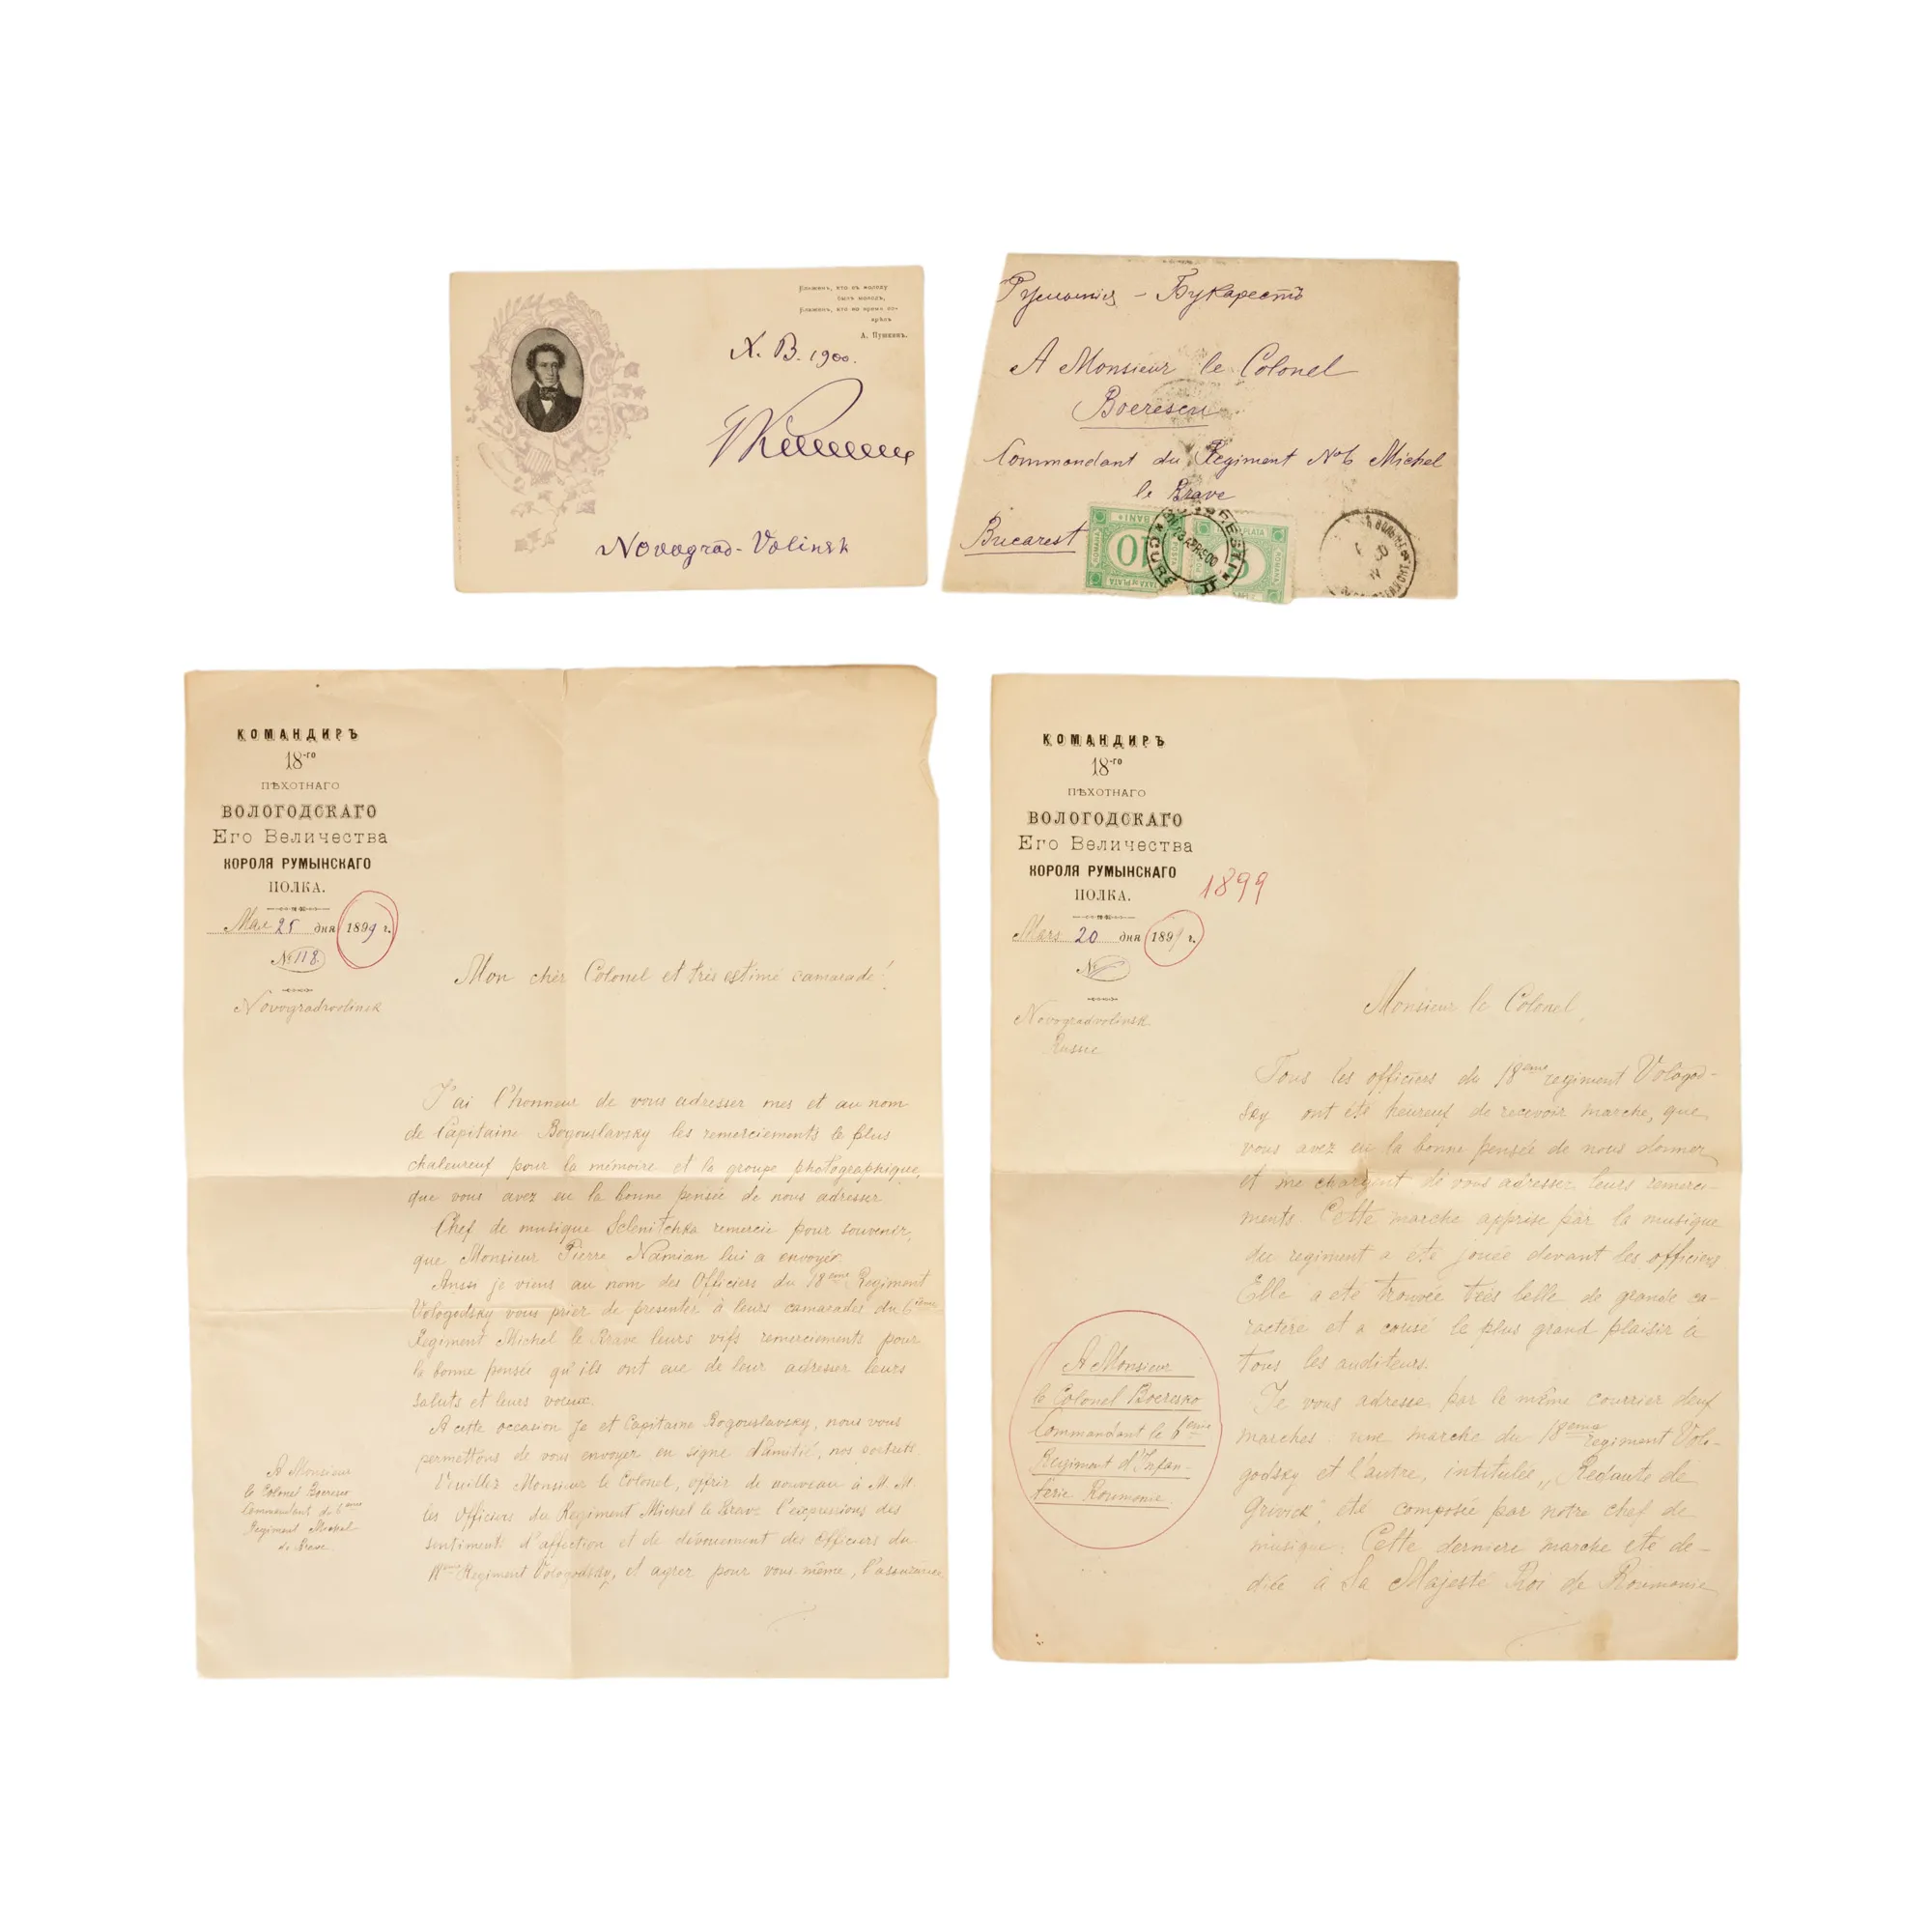 Блаженъ, кто съ молоду
былъ молодъ,
Блаженъ, кто во время со-
зрѣлъ
А. Пушкинъ.
Х. В. 1900.
Novograd-Volinsk
Румынія - Букарестъ
A Monsieur le Colonel
Boerescu
Commandant du Regiment No 6 Michel
le Brave
Bucarest
КОМАНДИРЪ
18-го
ПѢХОТНАГО
ВОЛОГОДСКАГО
Его Величества
КОРОЛЯ РУМЫНСКАГО
ПОЛКА.
Mae 25 дня 1899 г.
№ 118.
Novogradvolinsk
Mon cher Colonel et très estimé camarade!
J'ai l'honneur de vous adresser mes et au nom
de Capitaine Bogouslavsky les remerciements le plus
chaleureuf pour la mémoire et la groupe photographique,
que vous avez eu la bonne pensée de nous adresser
Chef de musique Sclenitchka remercie pour souvenir,
que Monsieur Pierre Namian lui a envoyer.
Aussi je viens au nom des Officiers du 18ème Regiment
Vologodsky vous prier de presenter à leurs camarades du 6ème
Regiment Michel le Brave leurs vifs remerciements pour
la bonne pensée qu'ils ont eue de leur adresser leurs
saluts et leurs voeux.
A cette occasion je et Capitaine Bogouslavsky, nous vous
permettons de vous envoyer en signe d'amitié, nos portraits
Veuillez Monsieur le Colonel, offrir de nouveau à M. M.
les Officiers du Regiment Michel le Brave l'expressions des
sentiments d'affection et de dévouement des Officiers du
18ème Regiment Vologodsky, et agrer pour vous-même, l'assurance
A Monsieur
le Colonel Boeresco
Commandant de 6ème
Regiment Michel
de Brave
КОМАНДИРЪ
18-го
ПѢХОТНАГО
ВОЛОГОДСКАГО
Его Величества
КОРОЛЯ РУМЫНСКАГО
ПОЛКА.
1899
Mars 20 дня 1899 г.
№
Novogradvolinsk
Russie
Monsieur le Colonel,
Tous les officiers du 18ème regiment Vologod-
sky ont été heureuf de recevoir marche, que
vous avez eu la bonne pensée de nous donner
et me chargent de vous adresser leurs remercie-
ments. Cette marche apprise par la musique
du regiment a eté jouée devant les officiers
Elle a eté trouvée très belle de grande ca-
ractère et a cousé le plus grand plaisir à
tous les auditeurs.
Je vous adresse par le même courrier deuf
marches: une marche du 18ème regiment Volo-
godsky et l'autre, intitulée „Redoute de
Grivica", eté composée par notre chef de
musique. Cette derniere marche eté de-
diée à Sa Majesté Roi de Roumanie
A Monsieur
le Colonel Boeresko
Commandant le 6ème
Regiment d'Infan-
terie Roumanie.